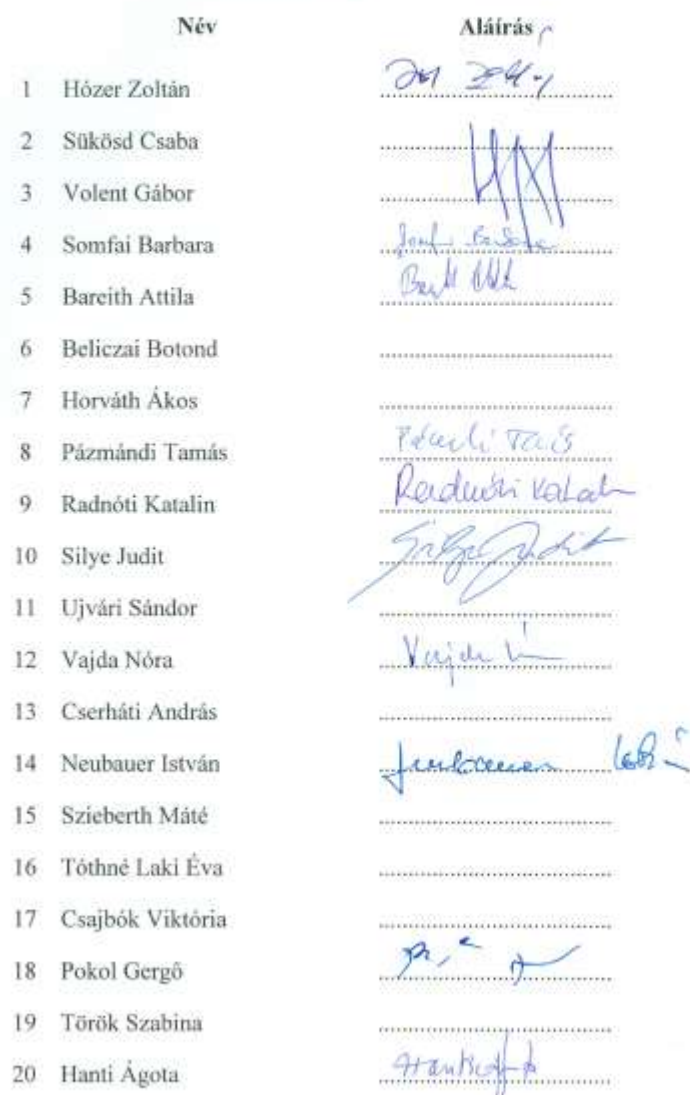 Név Aláírás
1 Hózer Zoltán
2 Sükösd Csaba
3 Volent Gábor
4 Somfai Barbara
5 Bareith Attila
6 Beliczai Botond
7 Horváth Ákos
8 Pázmándi Tamás
9 Radnóti Katalin Radnóti Katalin
10 Silye Judit Silye Judit
11 Ujvári Sándor
12 Vajda Nóra Vajda
13 Cserháti András
14 Neubauer István
15 Szieberth Máté
16 Tóthné Laki Éva
17 Csajbók Viktória
18 Pokol Gergő
19 Török Szabina
20 Hanti Ágota